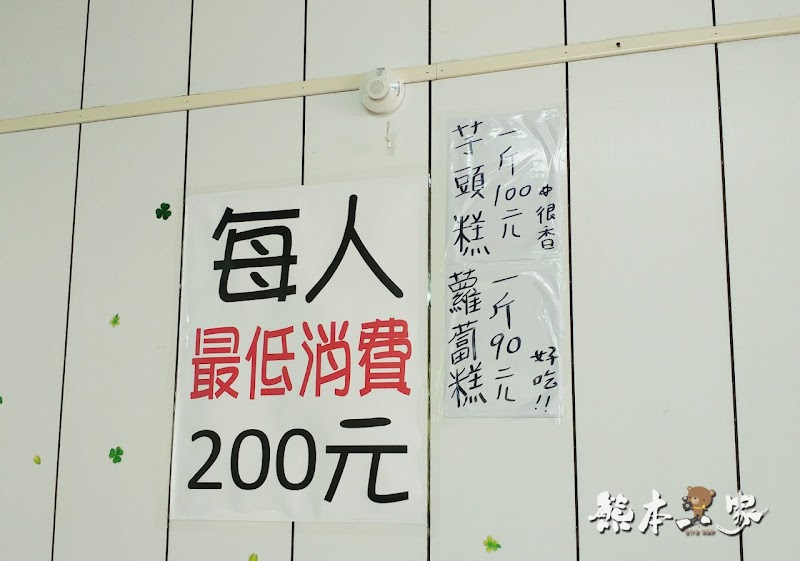 每人
最低消費
200元
芋頭糕
一斤100元
很香
蘿蔔糕
一斤90元
好吃!!
熊本一家